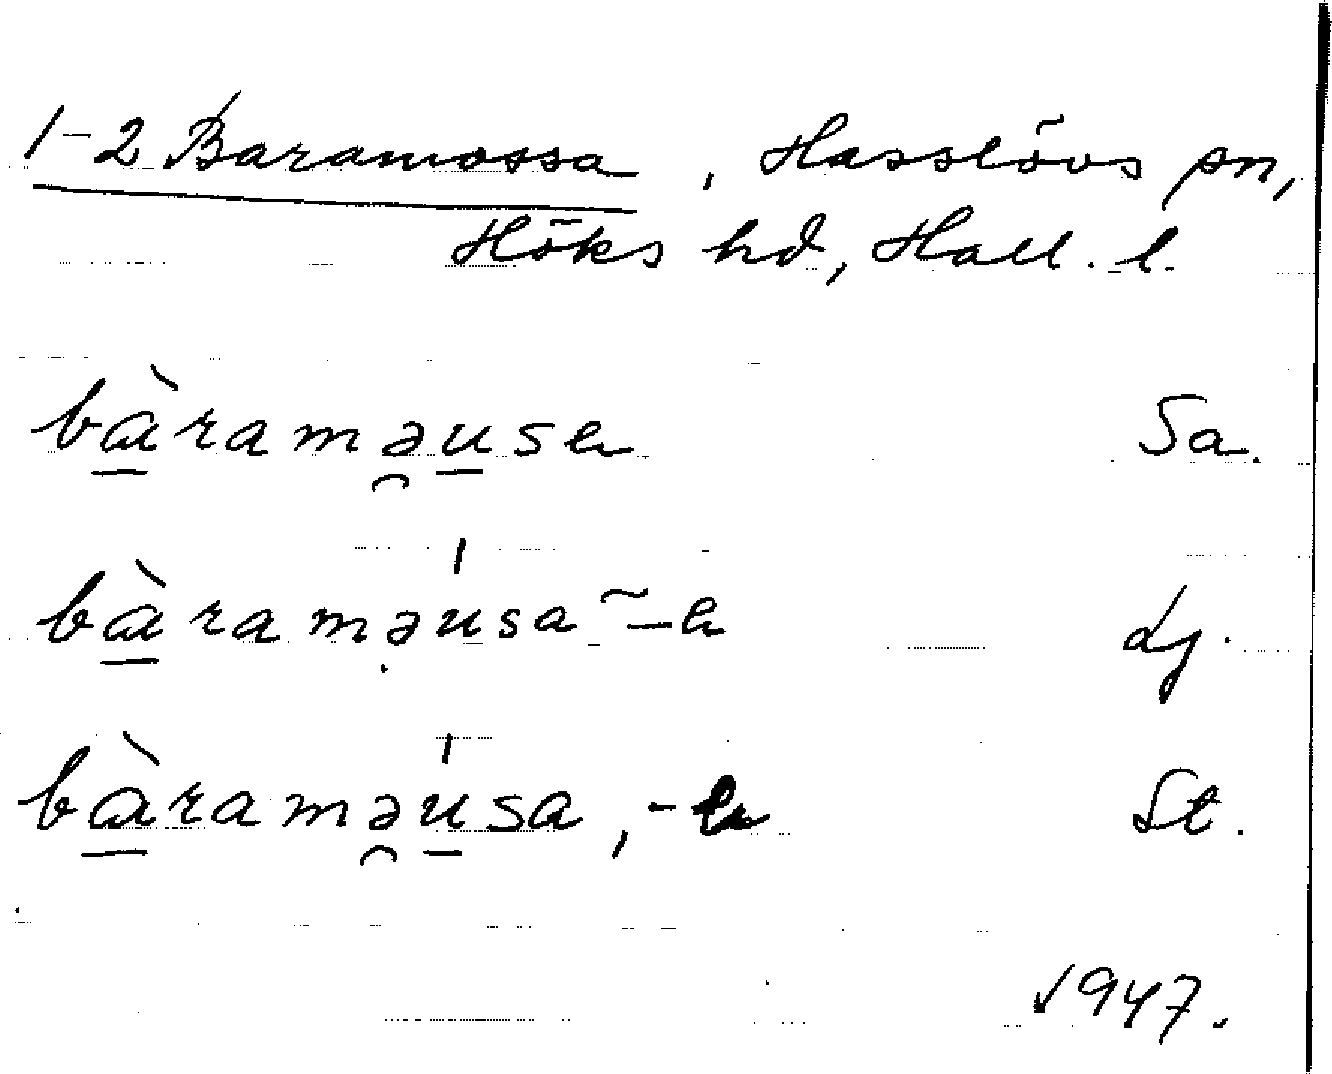 1-2 Baramossa, Hasslövs sn,
Höks hd, Hall. l.
bà̱ramə̯u̱sa Sa.
bà̱ramə̣úsa ~ -a Lj.
bà̱ramə̯ú̱sa, -a St.
1947.